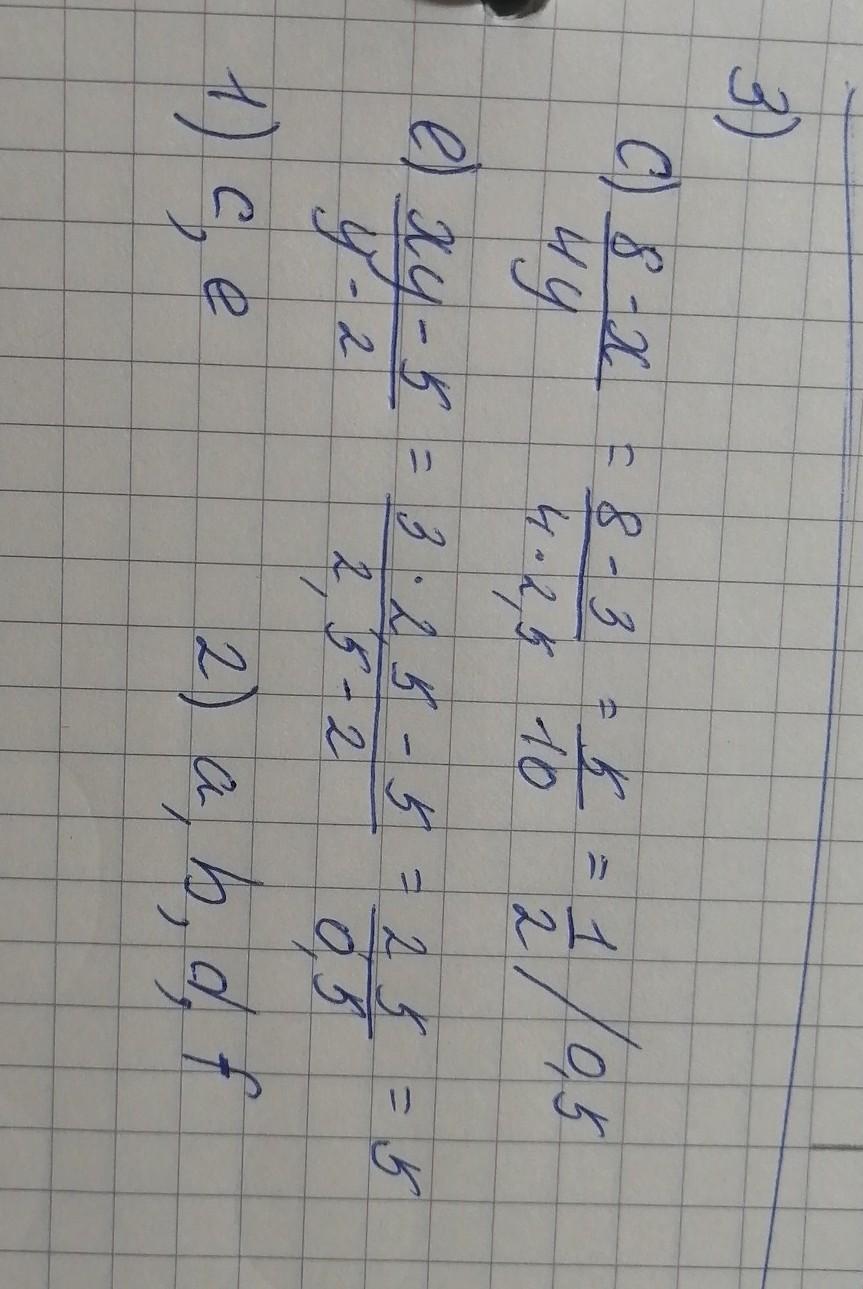 3)
c) \frac{8-x}{4y} = \frac{8-3}{4·2,5} = \frac{5}{10} = \frac{1}{2} / 0,5
e) \frac{xy-5}{y-2} = \frac{3·2,5-5}{2,5-2} = \frac{2,5}{0,5} = 5
1) c, e 2) a, b, d, f